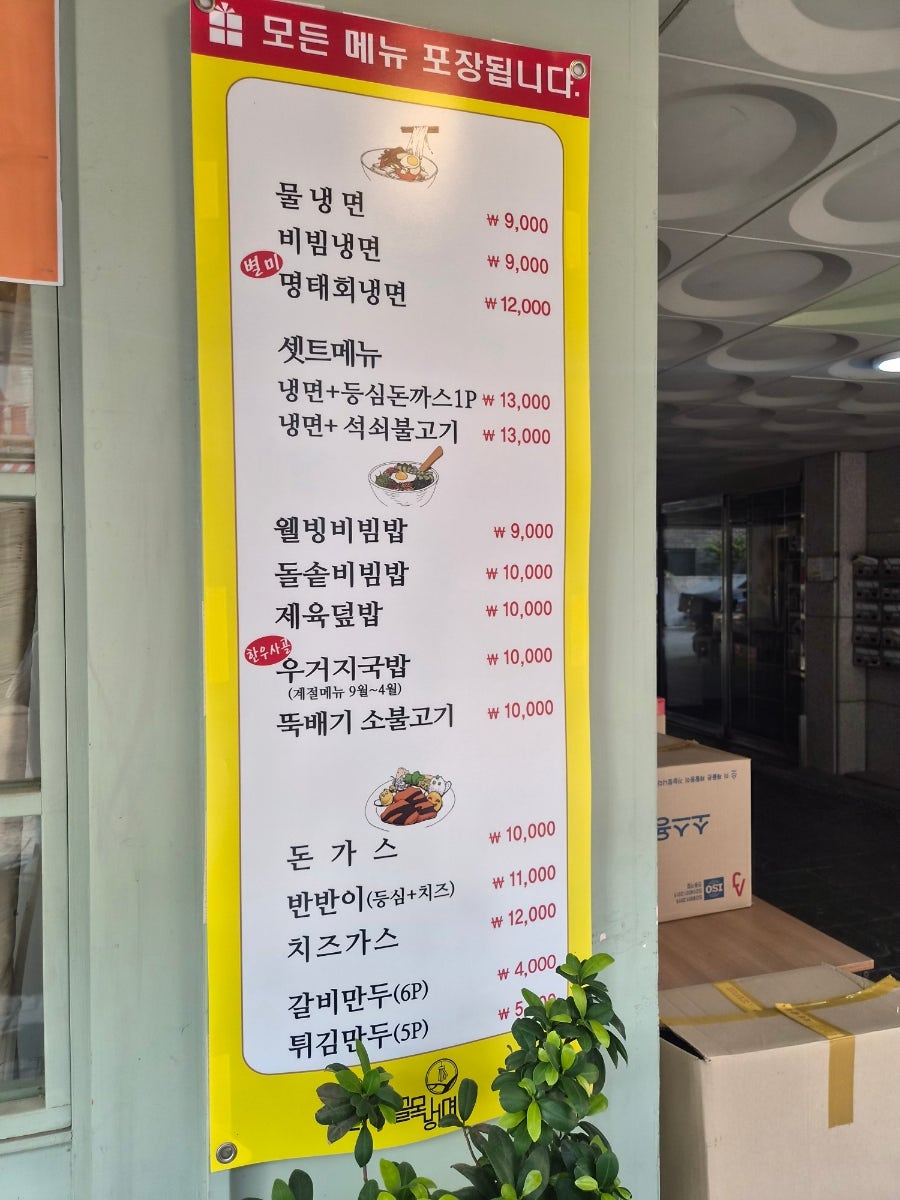 모든 메뉴 포장됩니다.
물냉면 ₩ 9,000
비빔냉면 ₩ 9,000
별미
명태회냉면 ₩ 12,000
셋트메뉴
냉면+등심돈까스1P ₩ 13,000
냉면+ 석쇠불고기 ₩ 13,000
웰빙비빔밥 ₩ 9,000
돌솥비빔밥 ₩ 10,000
제육덮밥 ₩ 10,000
한우사골
우거지국밥 ₩ 10,000
(계절메뉴 9월~4월)
뚝배기 소불고기 ₩ 10,000
돈 가 스 ₩ 10,000
반반이(등심+치즈) ₩ 11,000
치즈가스 ₩ 12,000
갈비만두(6P) ₩ 4,000
튀김만두(5P) ₩
골목냉면
소스용
ISO